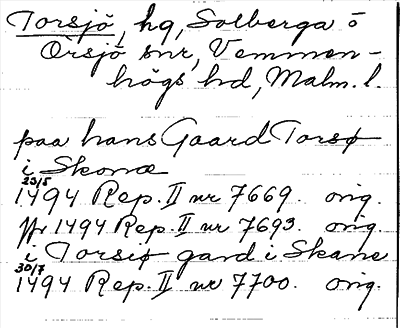 Torsjö, hg, Solberga o
Örsjö snr, Vemmen-
högs hd, Malm. l.
paa hans Gaard Torsø
i Skonæ
23/5
1494 Rep. II nr 7669. orig.
1494 Rep. II nr 7693. orig.
i Torsiø gard i Skane
30/7
1494 Rep. II nr 7700. orig.